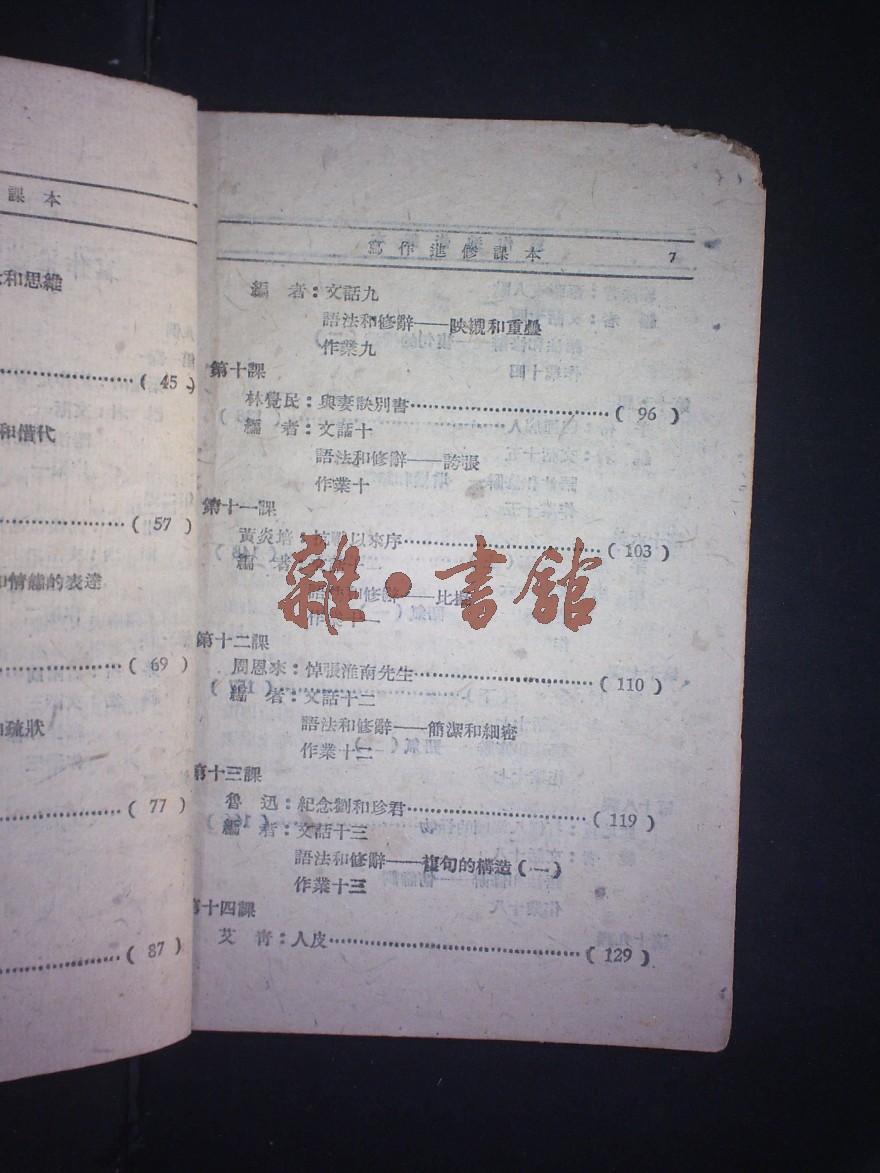 課本
和思維
(45)
和借代
(57)
和情緒的表達
(69)
和疏狀
(77)
(87)
寫作進修課本 7
編者:文話九
語法和修辭——映襯和重疊
作業九
第十課
林覺民:與妻訣別書 (96)
編者:文話十
語法和修辭——誇張
作業十
第十一課
黃炎培:抗戰以來序 (103)
編者:文話十一
語法和修辭——比擬
作業十一
第十二課
周恩來:悼張淮南先生 (110)
編者:文話十二
語法和修辭——簡潔和細密
作業十二
第十三課
魯迅:紀念劉和珍君 (119)
編者:文話十三
語法和修辭——複句的構造(一)
作業十三
第十四課
艾青:人皮 (129)
雜·書館